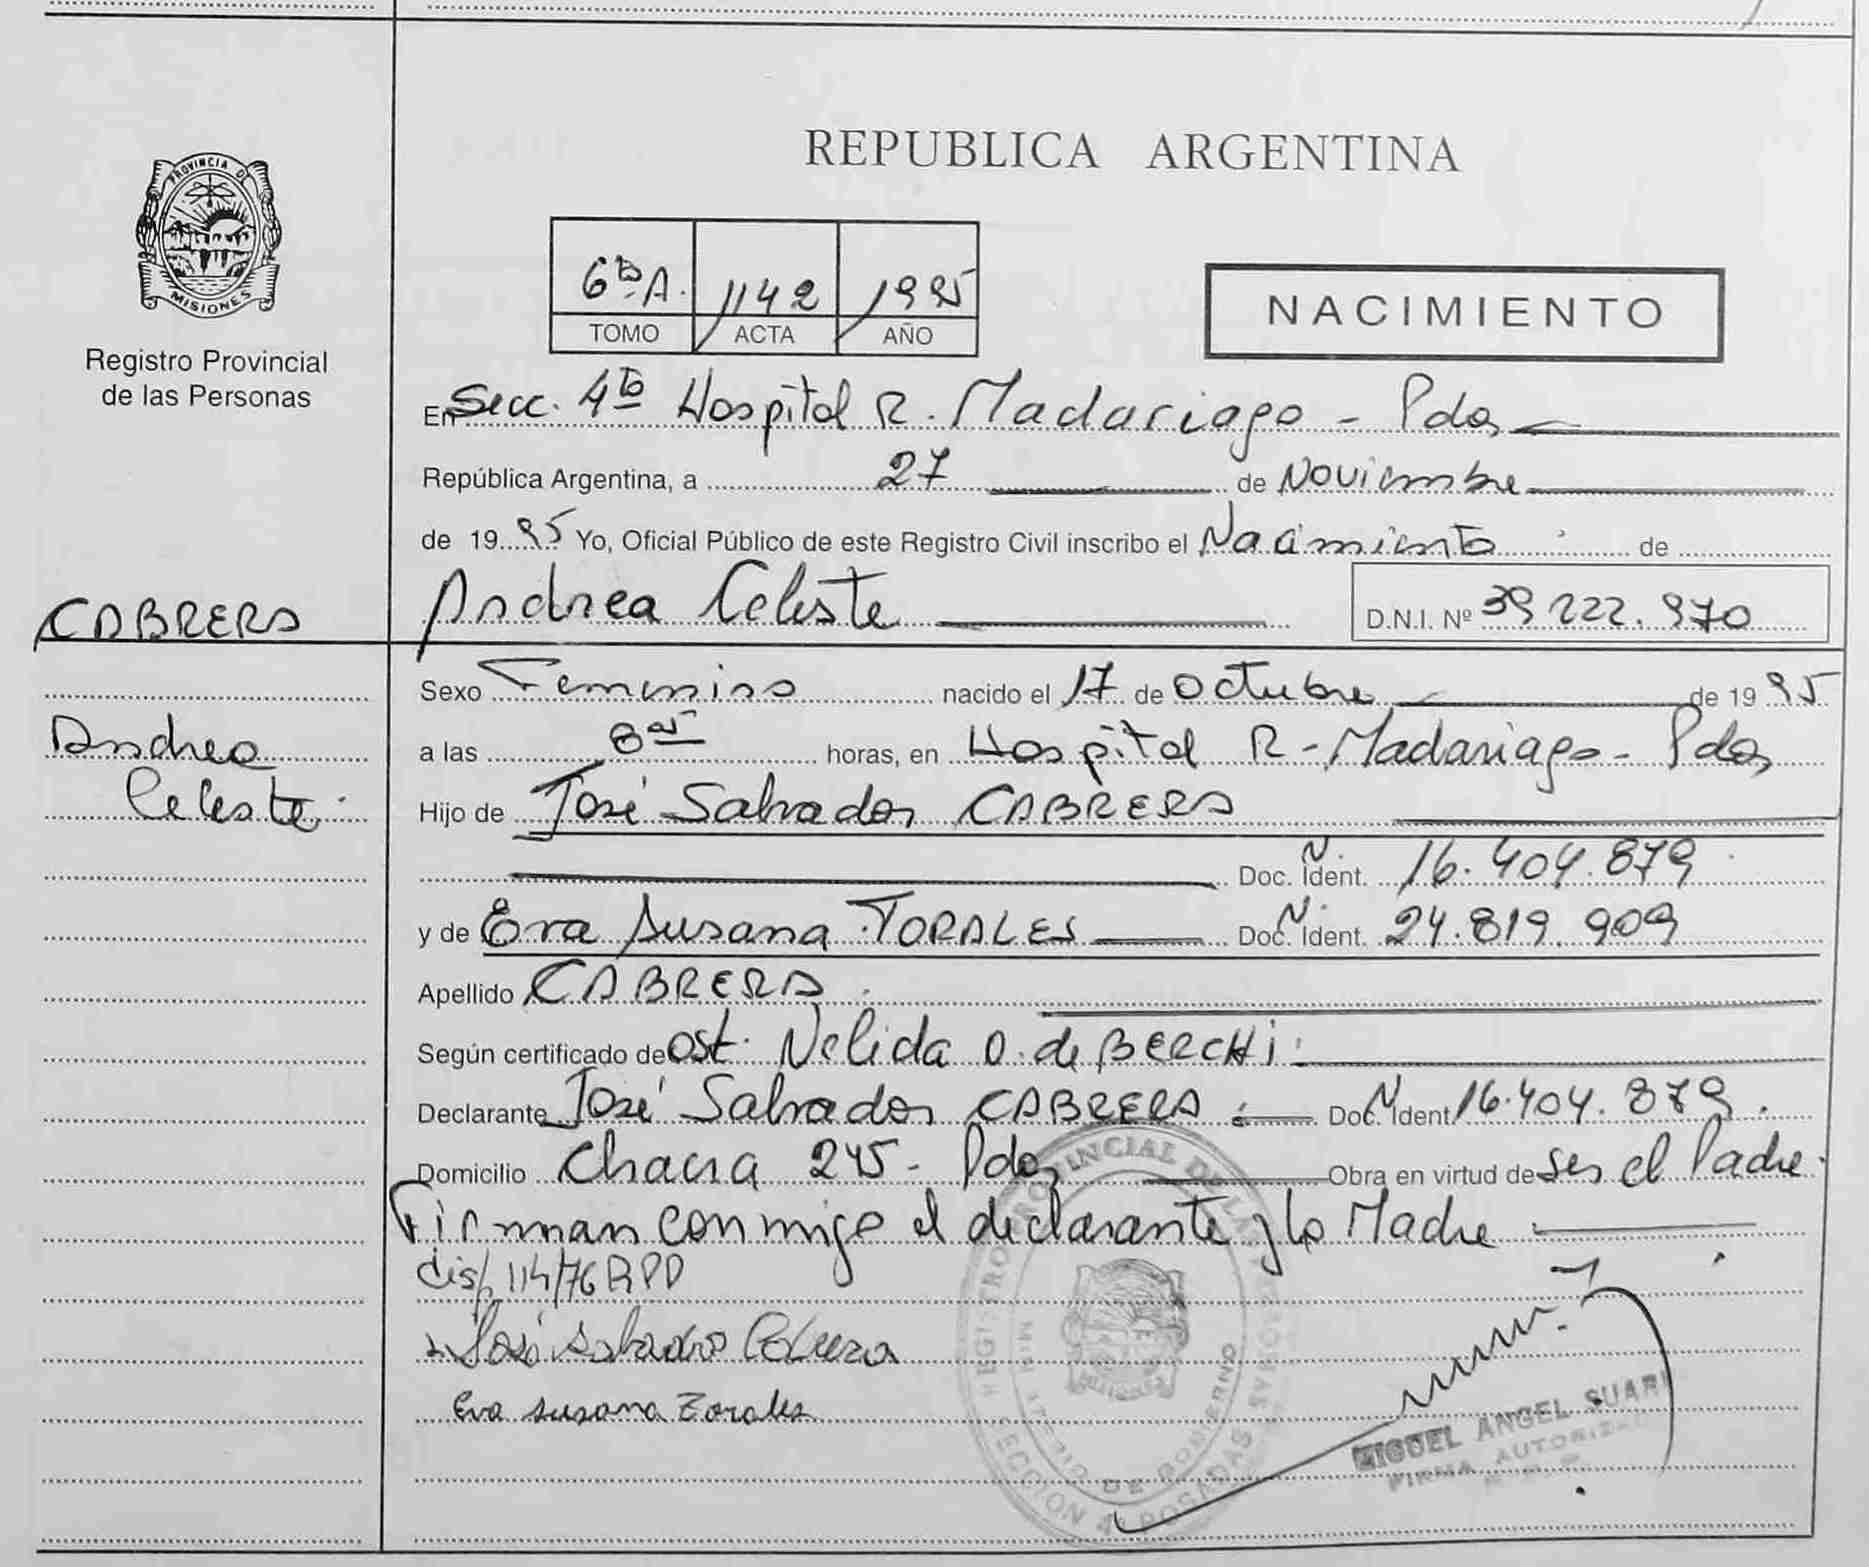 PROVINCIA DE
MISIONES
Registro Provincial
de las Personas
REPUBLICA ARGENTINA
6º A. 1142 1995
TOMO ACTA AÑO
NACIMIENTO
En Secc. 4ta Hospital R. Madariaga - Pdas
República Argentina, a 27 de Noviembre
de 1995 Yo, Oficial Público de este Registro Civil inscribo el Nacimiento de
CABRERA
Andrea Celeste D.N.I. Nº 39 222.970
Andrea
Celeste
Sexo Femenino nacido el 17 de Octubre de 1995
a las 8 horas, en Hospital R - Madariaga - Pdas
Hijo de José Salvador CABRERA
Doc. Ident. N. 16.404.879
y de Eva Susana TORALES Doc. Ident. N. 24.819.909
Apellido CABRERA
Según certificado de Ost. Nelida O. de BERCHI
Declarante José Salvador CABRERA Doc. Ident N 16.404.879.
Domicilio Chacra 245 - Pdas Obra en virtud de ser el Padre.
Firman conmigo el declarante y la Madre
disp. 114/76 RPP
José Salvador Cabrera
Eva Susana Torales
REGISTRO PROVINCIAL DE LAS PERSONAS
MINISTERIO DE GOBIERNO
SECCION 4ª POSADAS
MIGUEL ANGEL SUAR
FIRMA AUTORIZ